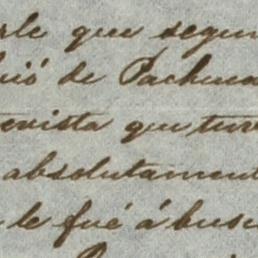 rle que segun
bió de Pachuca
revista que tuv
absolutament
le fué á busc